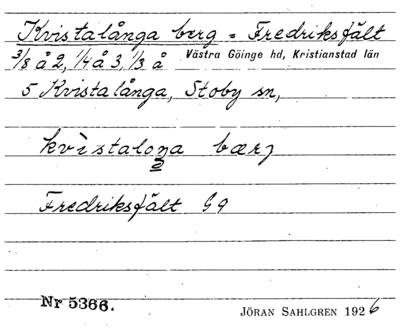 Kvistalånga berg = Fredriksfält
3/8 å 2, 1/4 å 3, 1/3 å Västra Göinge hd, Kristianstad län
5 Kvistalånga, Stoby sn,
kvìstaloŋa bærj
2
Fredriksfält G9
Nr 5366.
JÖRAN SAHLGREN 1926